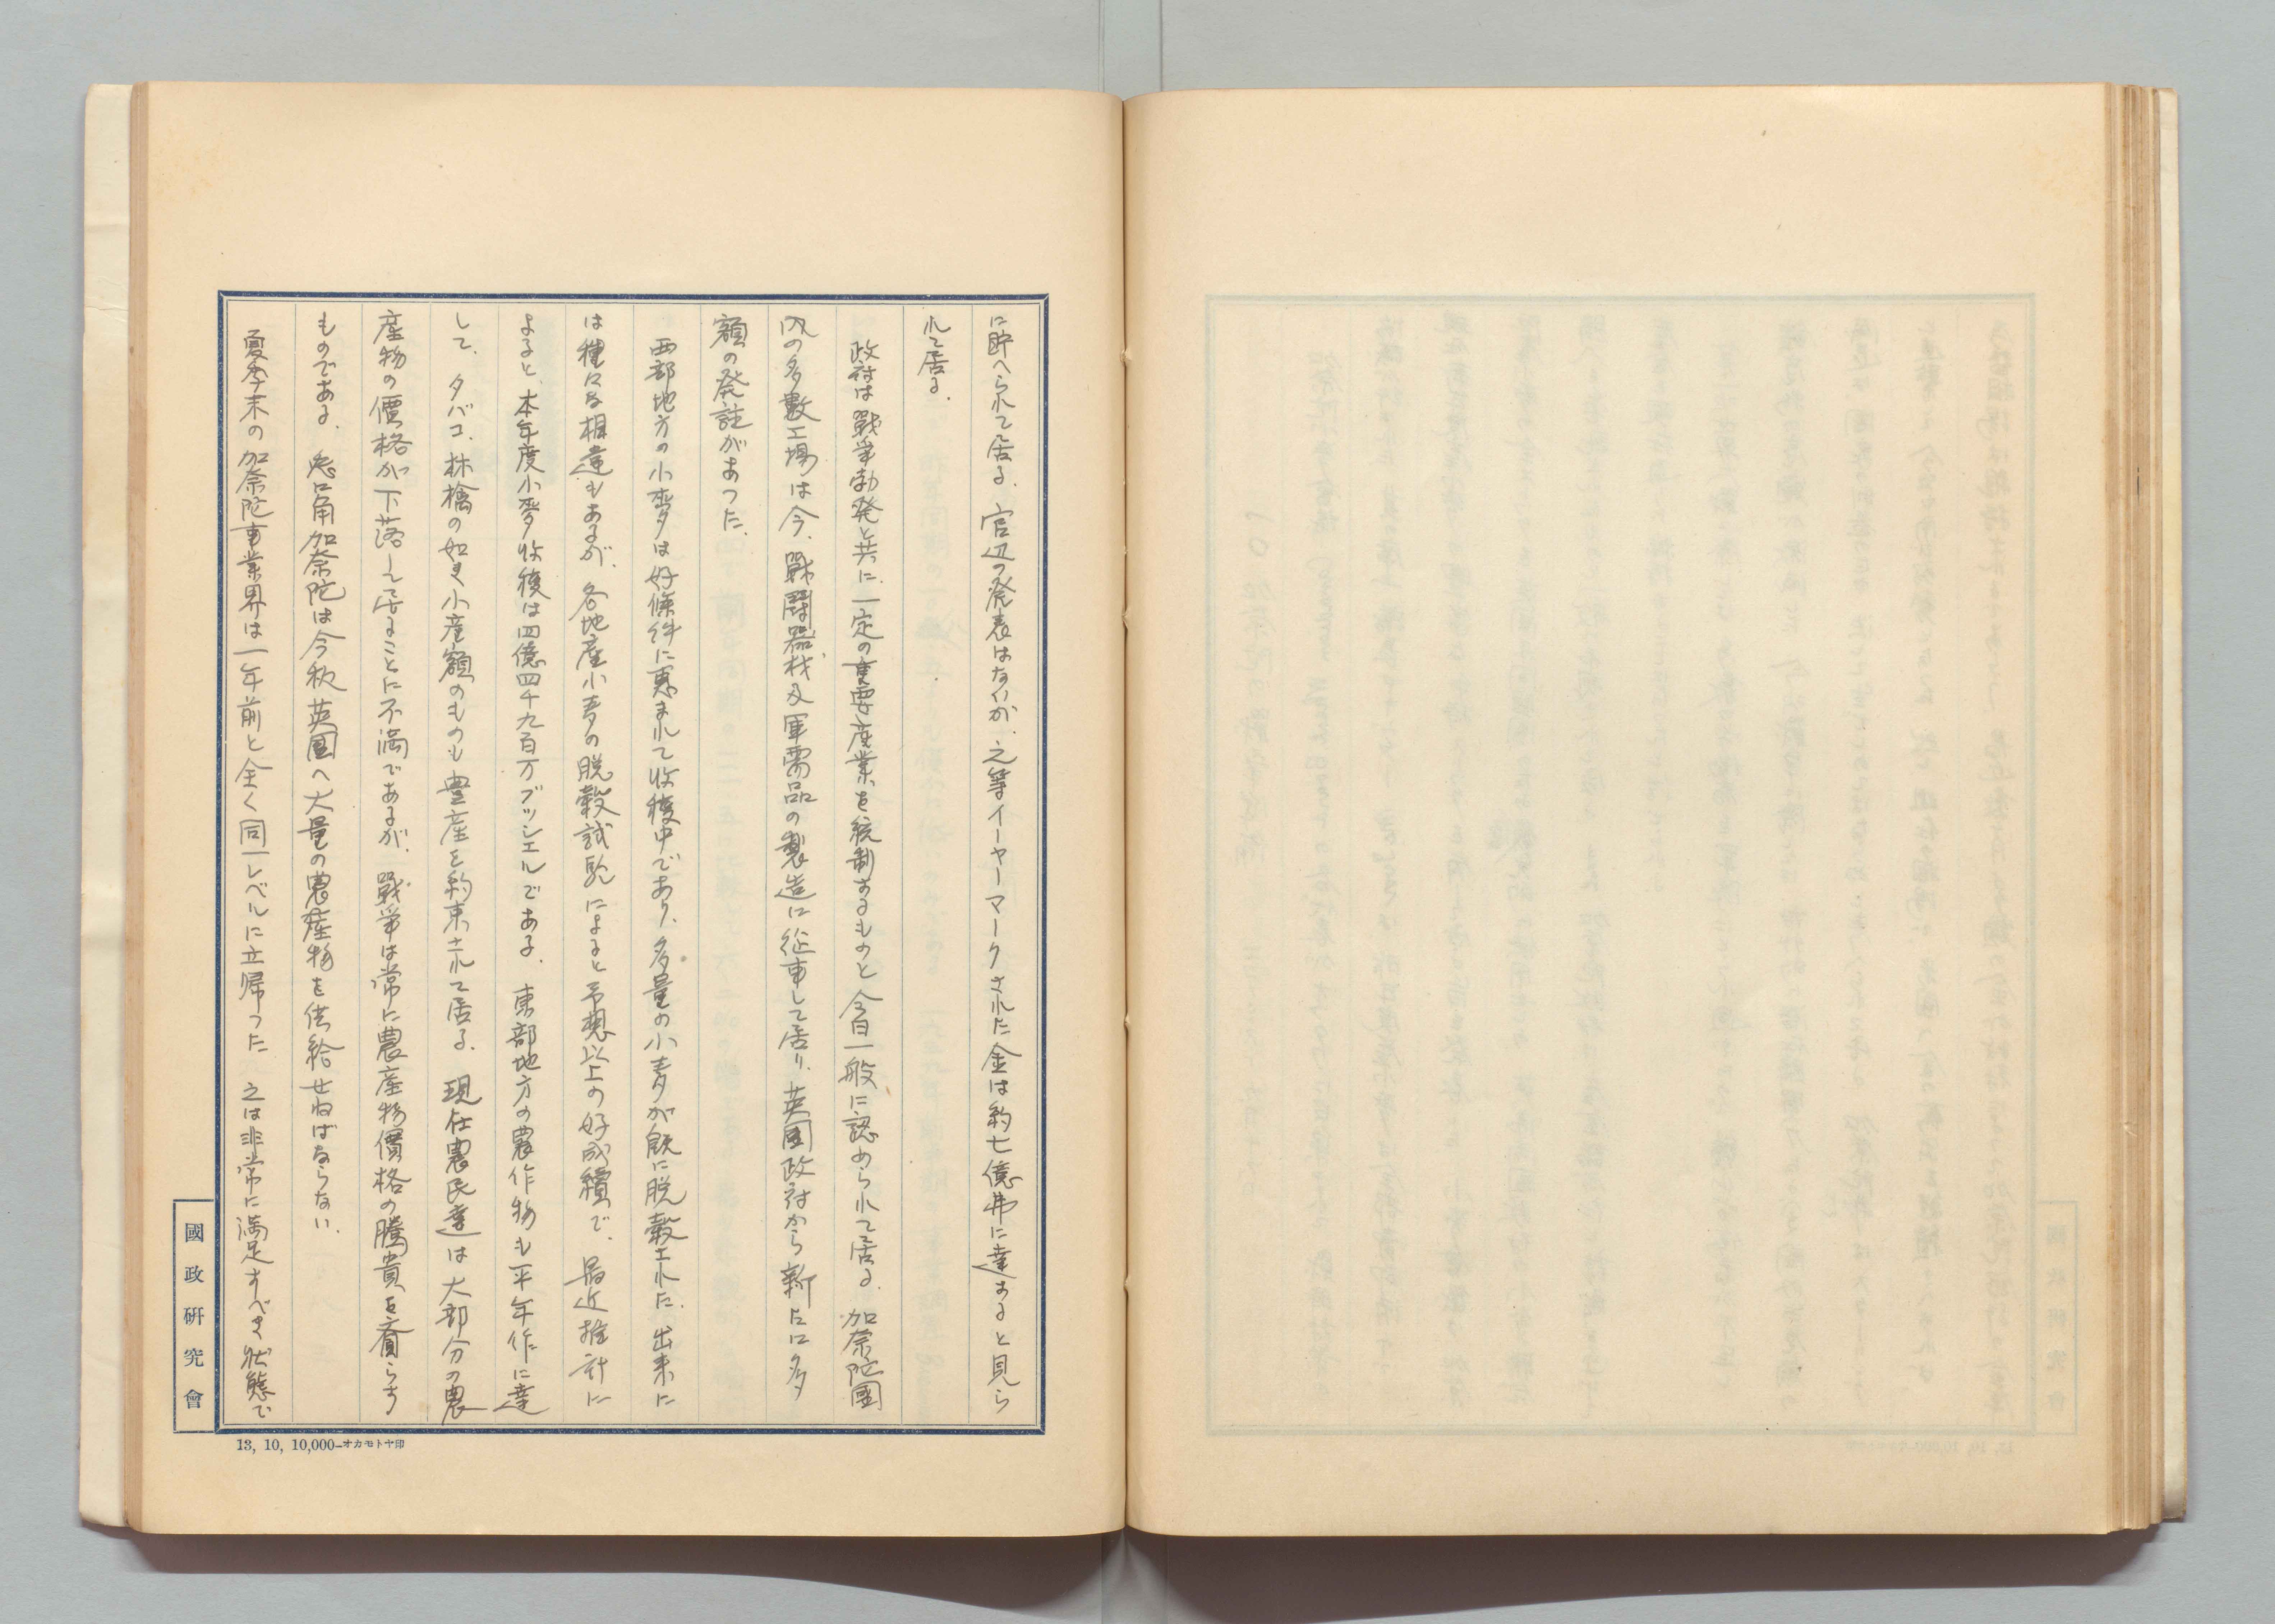 に貯へられて居る、官辺の発表はないが、之等イーヤーマークされた金は約七億弗に達すると見ら
れて居る、
政府は戰爭勃発と共に、一定の重要産業を統制するものと今日一般に認められて居る、加奈陀國
内の多數工場は今、戰鬪器材及軍需品の製造に従事して居り、英國政府から新たに多
額の発註があつた、
西部地方の小麥は好條件に惠まれて收穫中であり、多量の小麦が既に脱穀された、出来に
は種々な相違もあるが、各地産小麦の脱穀試驗によると予想以上の好成績で、最近推計に
よると、本年度小麥收穫は四億四千九百万ブッシエルである、東部地方の農作物も平年作に達
して、タバコ、林檎の如き小産額のものも豊産を約束されて居る、現在農民達は大部分の農
産物の價格が下落して居ることに不満であるが、戰爭は常に農産物價格の騰貴を齎らす
ものである、兎に角加奈陀は今秋英國へ大量の農産物を供給せねばならない、
夏季末の加奈陀事業界は一年前と全く同一レベルに立帰つた 之は非常に満足すべき状態で
國政研究會
13, 10, 10,000—オカモトヤ印